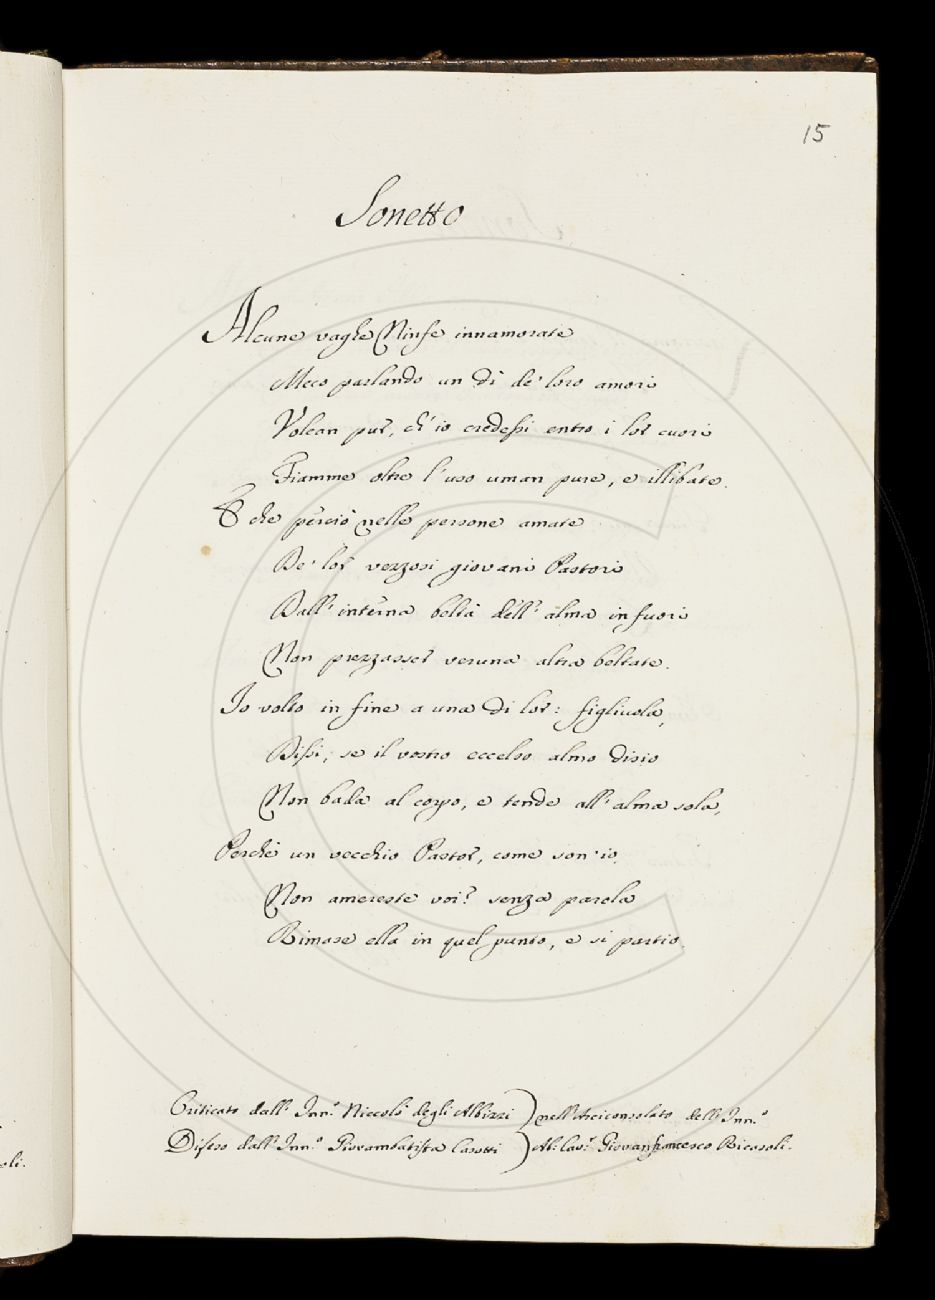 15
Sonetto
Alcune vaghe Ninfe innamorate
Meco parlando un dì de' loro amori
Volean pur, ch'io credessi entro i lor cuori
Fiamme oltre l'uso uman pure, e illibate.
E che perciò nelle persone amate
De' lor vezzosi giovani Pastori
Dall'interna beltà dell'alma in fuori
Non prezzasser veruna altra beltate.
Io volto in fine a una di lor: figliuola,
Dissi; se il vostro eccelso almo disio
Non bada al corpo, e tende all'alma sola,
Perchè un vecchio Pastor, come son'io
Non amereste voi? senza parola
Rimase ella in quel punto, e si partio.
Criticato dall'Inn.º Niccolò degli Albizzi ) nell'Arciconsolato dell'Inn.º
Difeso dall'Inn.º Giovambatista Casotti ) Ab: Cav.r Giovanfrancesco Ricasoli.
oli.